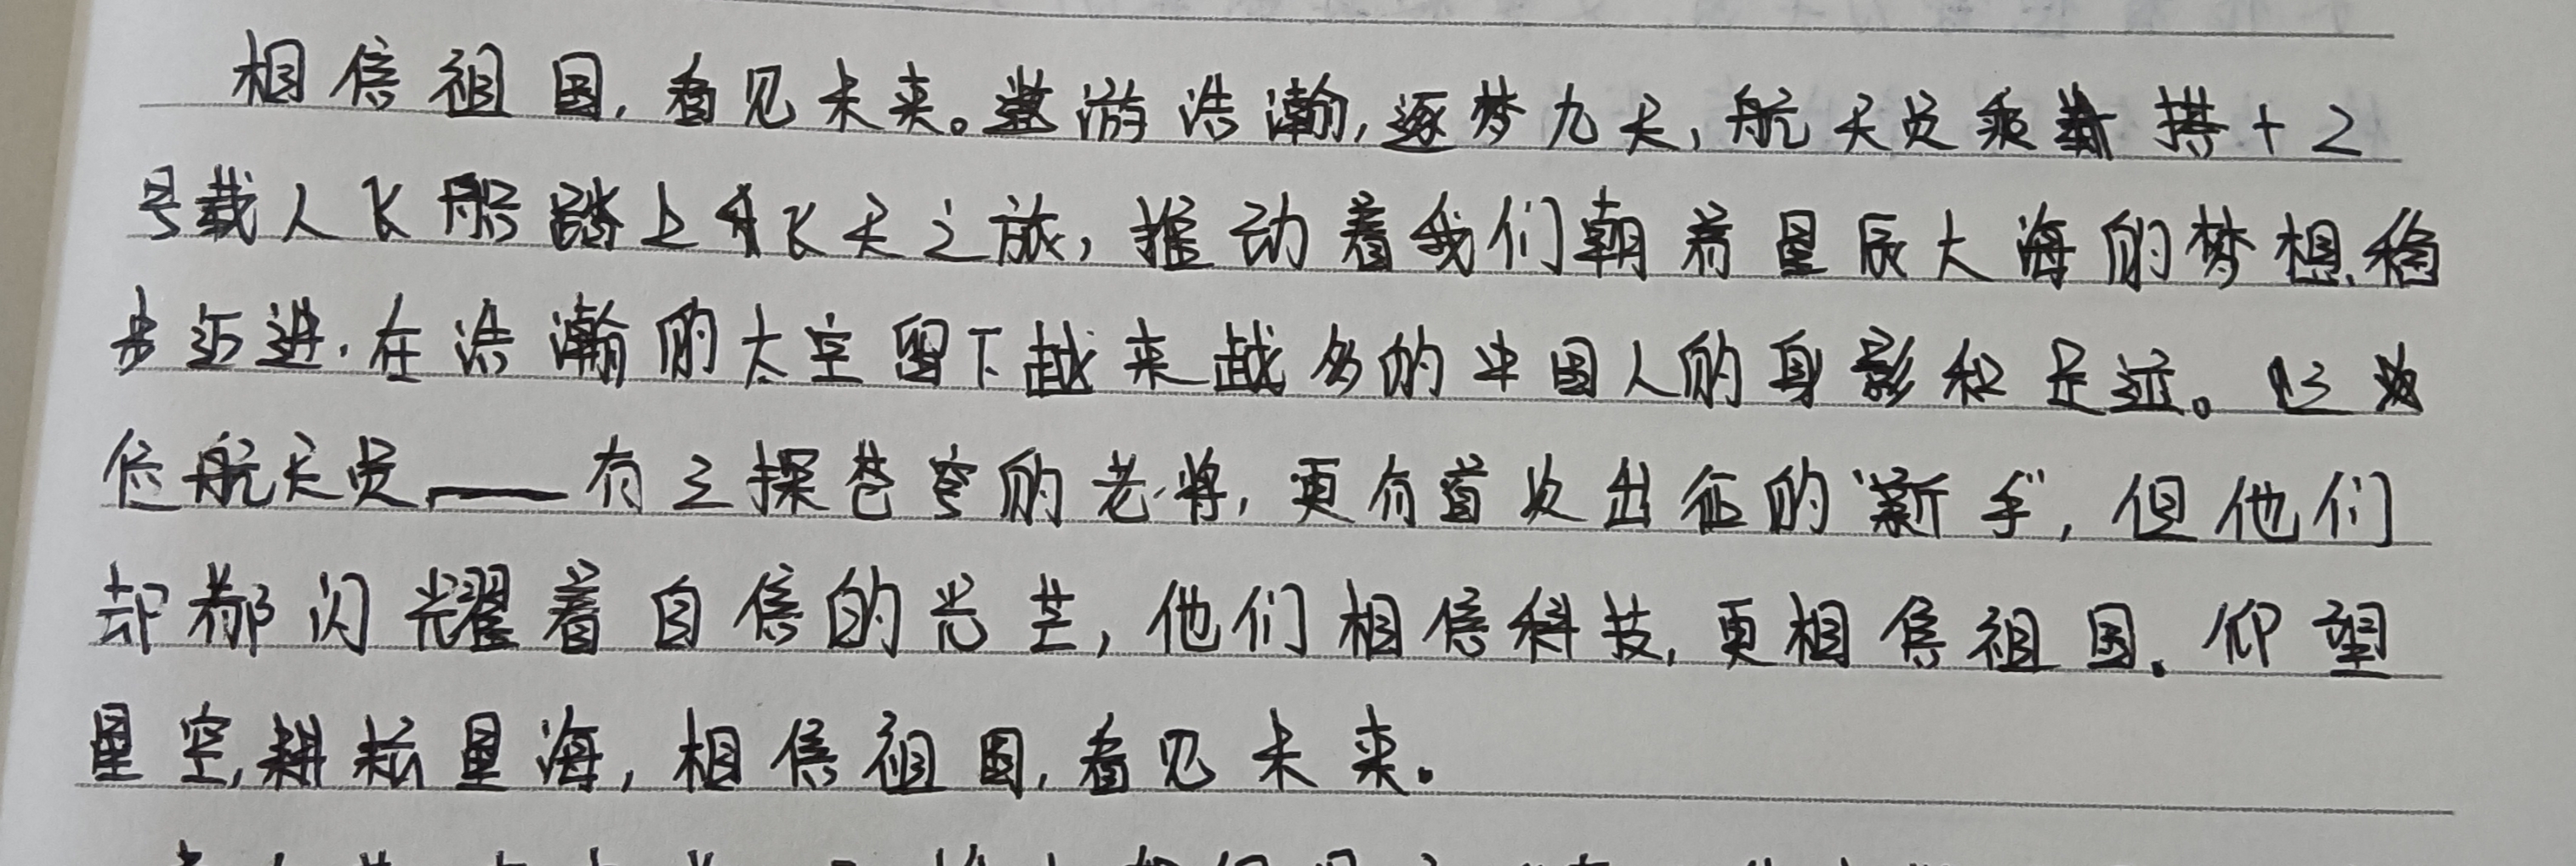 相信祖国,看见未来。遨游浩瀚,逐梦九天,航天员乘搭十2
号载人飞船踏上飞天之旅,推动着我们朝着星辰大海的梦想,稳
步迈进,在浩瀚的太空留下越来越多的中国人的身影和足迹。
位航天员——有三探苍穹的老将,更有首次出征的"新手",但他们
却都闪耀着自信的光芒,他们相信科技,更相信祖国。仰望
星空,耕耘星海,相信祖国,看见未来。